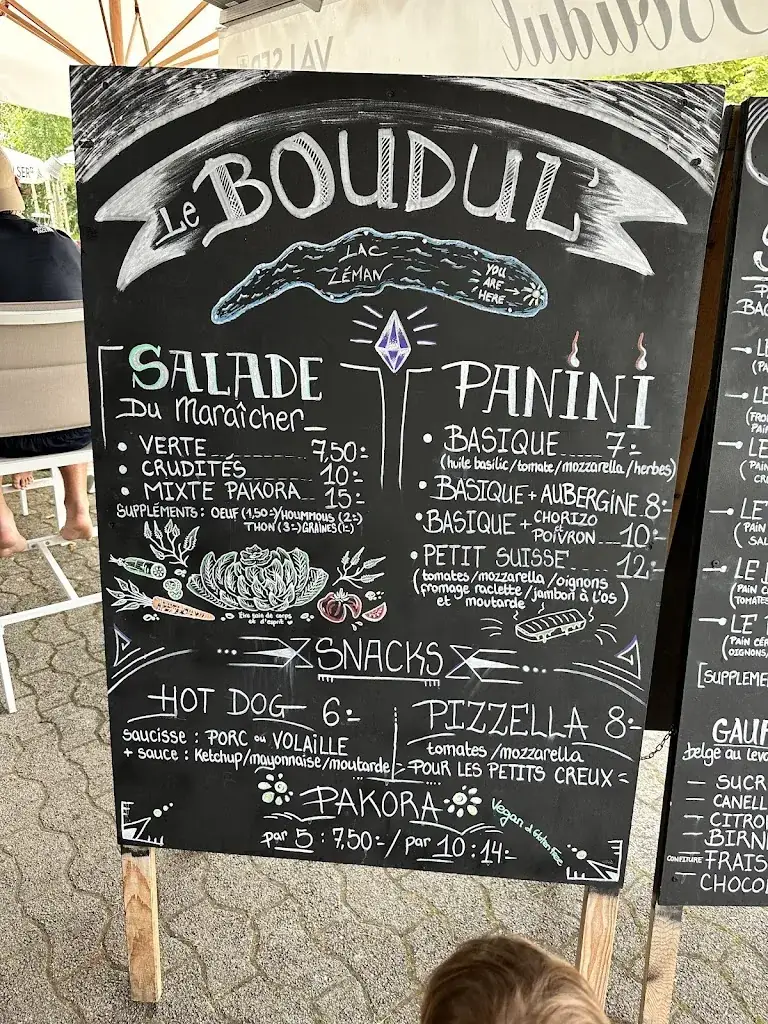 Boudul
VALSER
Le BOUDUL'
LAC
LÉMAN
YOU
ARE
HERE
SALADE
Du Maraîcher
• VERTE 7,50.-
• CRUDITÉS 10.-
• MIXTE PAKORA 15.-
SUPPLÉMENTS : OEUF (1,50.-)/HOUMMOUS (2.-)
THON (3.-) GRAINES (1.-)
Être sain de corps
et d'esprit
PANINI
• BASIQUE 7.-
(huile basilic/tomate/mozzarella/herbes)
• BASIQUE + AUBERGINE 8.-
• BASIQUE + CHORIZO
POIVRON 10.-
• PETIT SUISSE 12.-
(tomates/mozzarella/oignons
fromage raclette/jambon à l'os)
et moutarde
SNACKS
HOT DOG 6.-
saucisse : PORC ou VOLAILLE
+ sauce : Ketchup/mayonnaise/moutarde
PIZZELLA 8.-
tomates/mozzarella
- POUR LES PETITS CREUX -
PAKORA
Vegan & Gluten Free
par 5 : 7,50.- / par 10 : 14.-
LE
LE
LE
(PAIN
LE
(PAIN
LE
LE
[SUPPLEME
GAUF
belge au leva
— SUCR
— CANELL
— CITRO
— BIRN
CONFITURE — FRAIS
— CHOCO